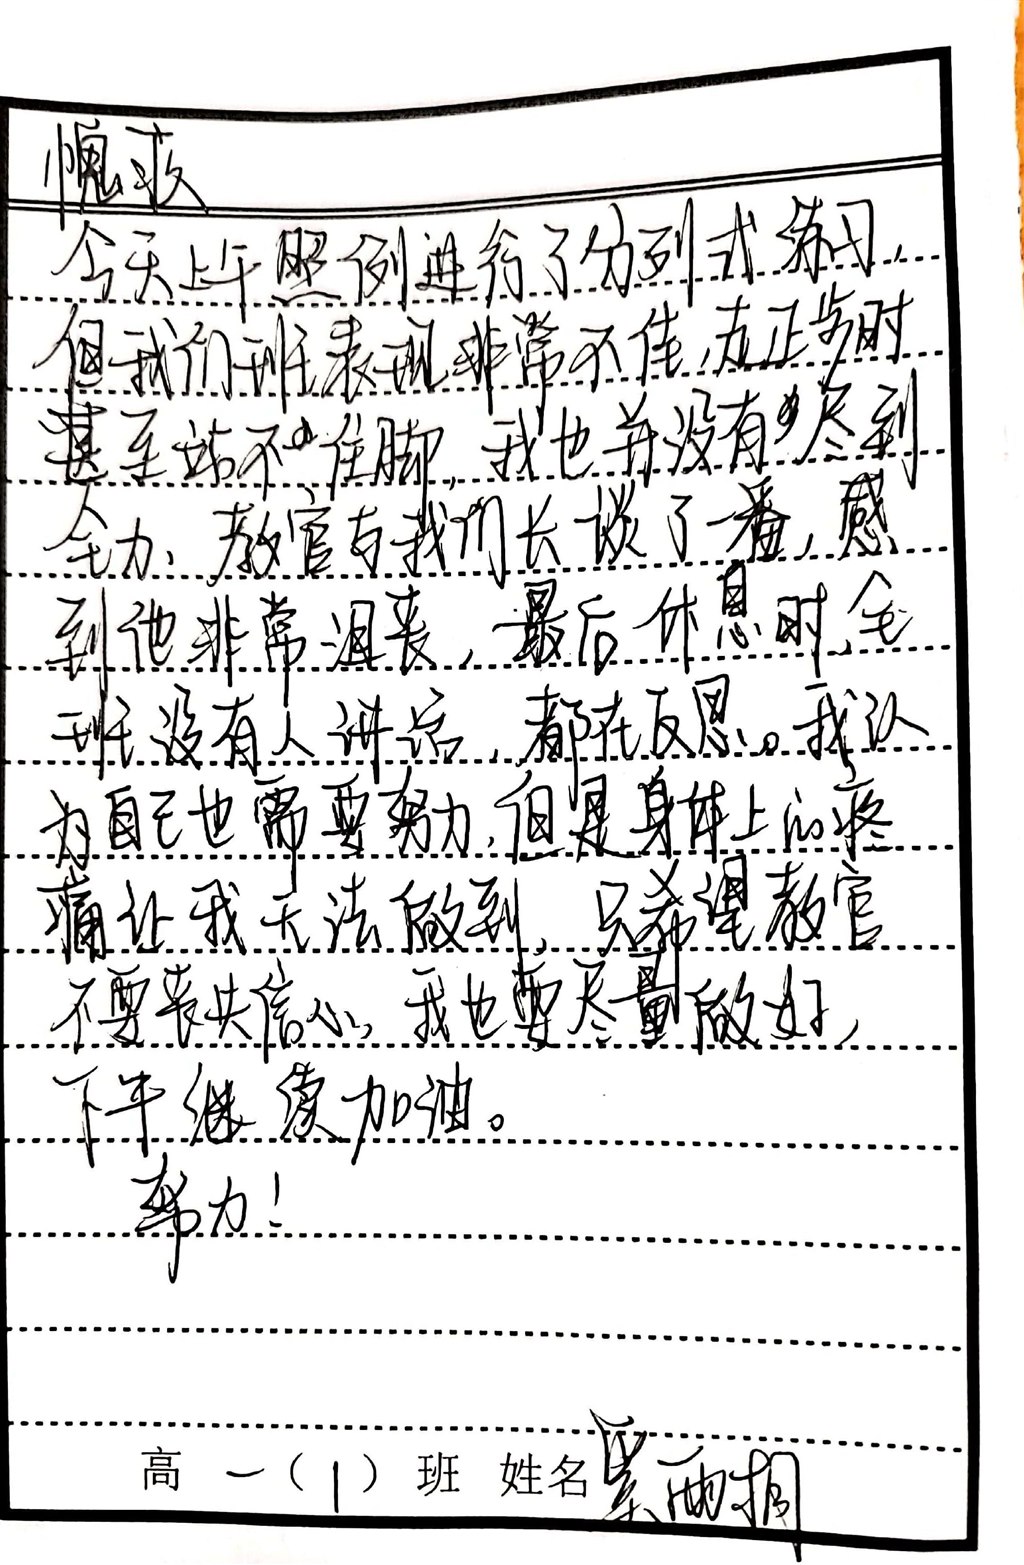 愧疚
今天上午照例进行了分列式练习，
但我们班表现非常不佳，走正步时
甚至站不住脚，我也并没有尽到
全力、教官与我们长谈了一番，感
到他非常沮丧，最后休息时，全
班没有人讲话，都在反思。我认
为自己也需要努力，但是身体上的疼
痛让我无法做到，只希望教官
不要丧失信心，我也要尽量做好，
下午继续加油。
努力！
高一（1）班 姓名 雨桐